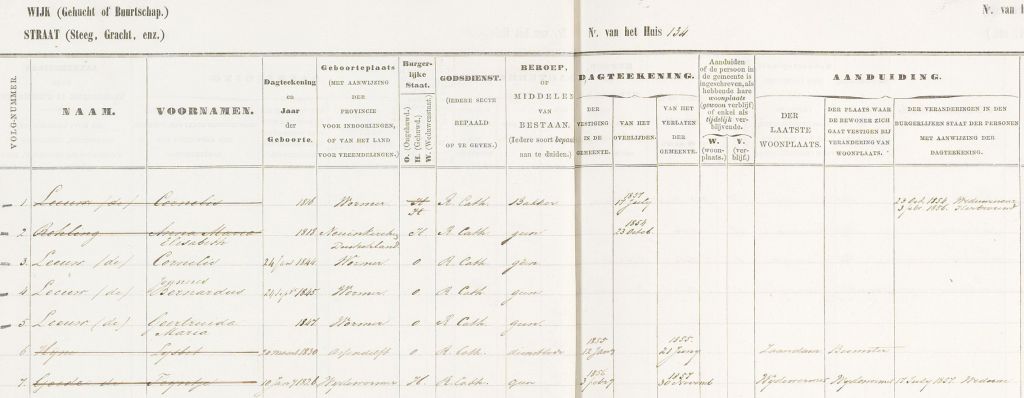 WIJK (Gehucht of Buurtschap.)
STRAAT (Steeg, Gracht, enz.)
Nr. van het Huis 134
Nr. van h
VOLG-NUMMER.
NAAM.
VOORNAMEN.
Dagteekening
en
Jaar
der
Geboorte.
Geboorteplaats
(MET AANWIJZING
DER
PROVINCIE
VOOR INBOORLINGEN,
OF VAN HET LAND
VOOR VREEMDELINGEN.)
Burger-
lijke
Staat.
O. (Ongehuwd.)
H. (Gehuwd.)
W. (Weduwenstaat.)
GODSDIENST.
(IEDERE SECTE
BEPAALD
OP TE GEVEN.)
BEROEP,
OF
MIDDELEN
VAN
BESTAAN.
(Iedere soort bepaa
aan te duiden.)
DAGTEEKENING.
DER
VESTIGING
IN DE
GEMEENTE.
VAN HET
OVERLIJDEN.
VAN HET
VERLATEN
DER
GEMEENTE.
Aanduiden
of de persoon in
de gemeente is
ingeschreven, als
hebbende hare
woonplaats
(gewoon verblijf)
of enkel als
tijdelijk ver-
blijvende.
W.
(woon-
plaats.)
V.
(ver-
blijf.)
AANDUIDING.
DER
LAATSTE
WOONPLAATS.
DER PLAATS WAAR
DE BEWONER ZICH
GAAT VESTIGEN BIJ
VERANDERING VAN
WOONPLAATS.
DER VERANDERINGEN IN DEN
BURGERLIJKEN STAAT DER PERSONEN
MET AANWIJZING DER
DAGTEEKENING.
1. Leeuw (de) Cornelis 1816 Wormer H R. Cath. Bakker 1857 July
H
2. Rohling Anna Maria 1818 H R. Cath. geen 1854 23 Octob.
Elisabeth Duitschland
3. Leeuw (de) Cornelis 24 Jan 1844 Wormer O R. Cath. geen
4. Leeuw (de) Bernardus 1845 Wormer O. R. Cath. geen
5. Leeuw (de) Geertruida 1847 Wormer O. R. Cath. geen
Maria
6. 20 maart 1830 Assendelft O R. Cath. dienstbode 1855 12 1855 Zaandam Beemster
7. Goede de 1826 Wydewormer H. R. Cath. geen 1856 1857 Wydewormer Wydewormer July 1857